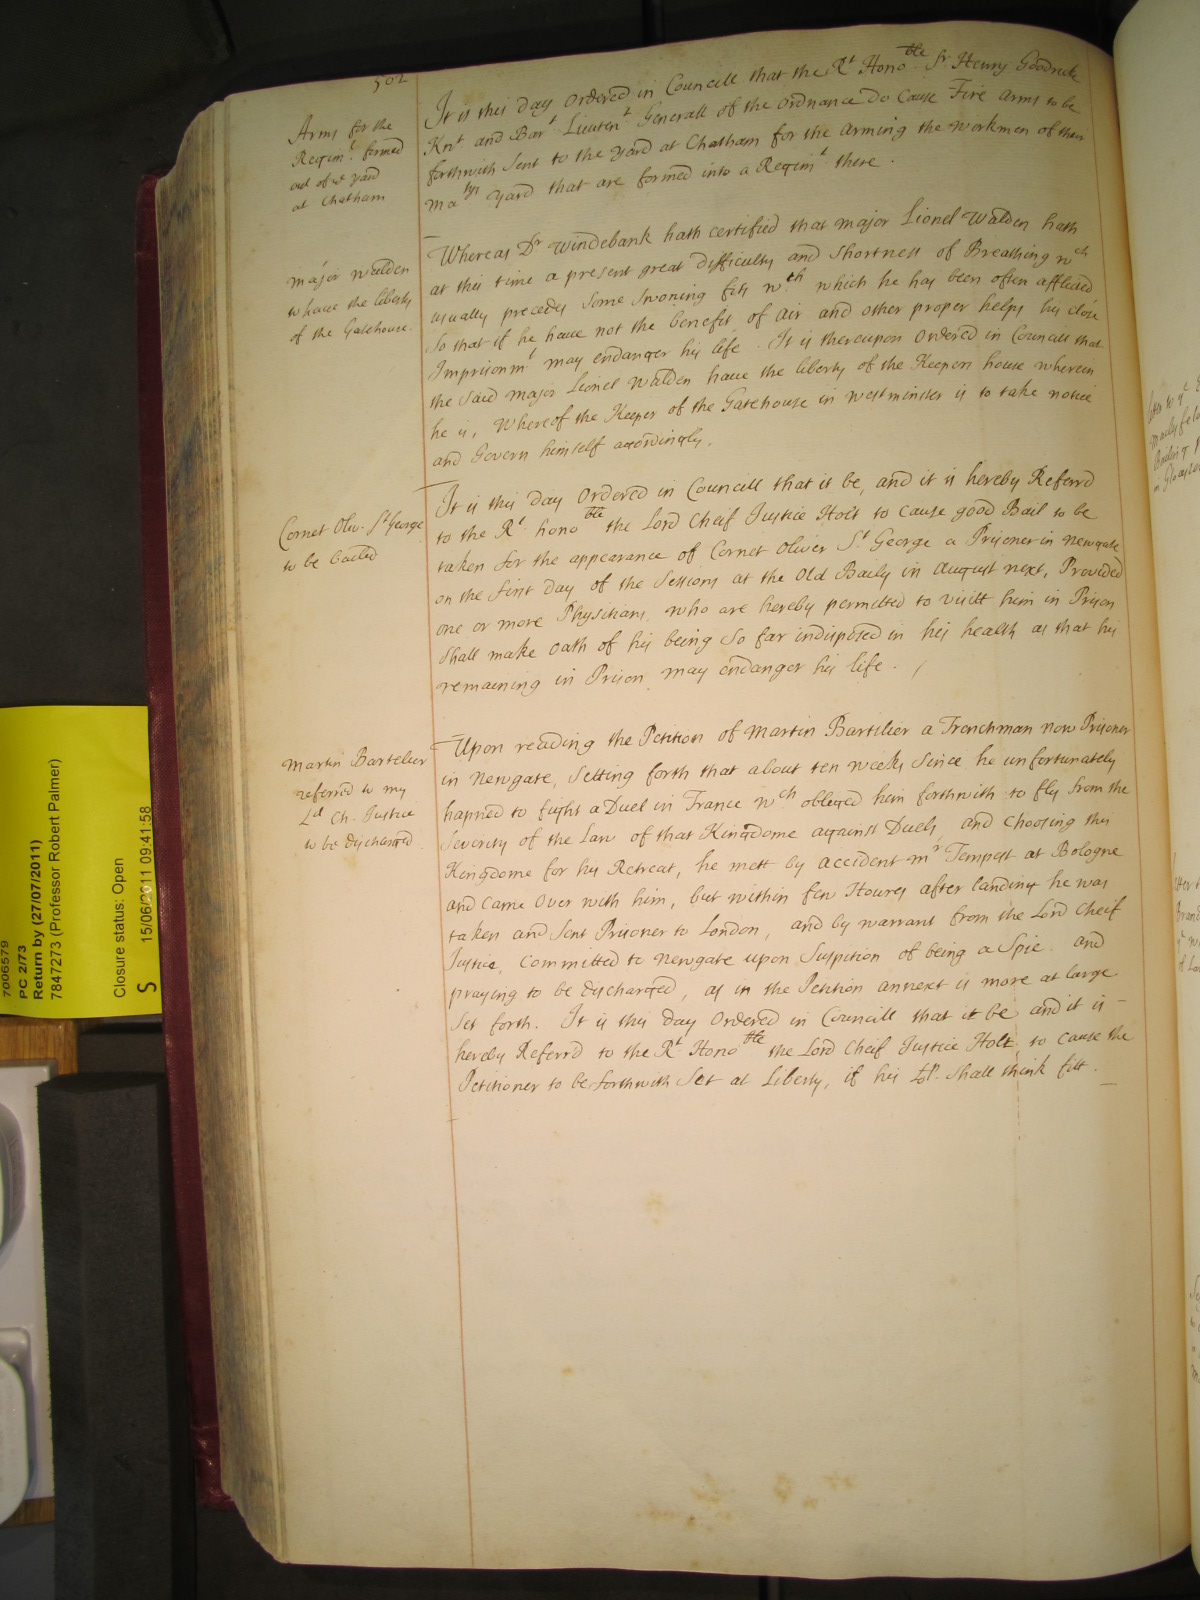 502
Arms for the
Regimt. formed
out of ye yard
at Chatham
It is this day Ordered in Councill that the Rt Honoble Sr Henry Goodricke
Knt and Bart Lieutent Generall of the Ordnance Do Cause Fire Arms to be
forthwith Sent to the Yard at Chatham for the Arming the workmen of their
Matys Yard that are formed into a Regimt there.
Major Walden
to have the liberty
of the Gatehouse.
Whereas Dr Windebank hath certified that Major Lionel Walden hath
at this time a present great difficulty and Shortness of Breathing wch
usually precedes Some Swoning fitts wth which he has been often afflicted
So that if he have not the benefit of Air and other proper helps his close
Imprisonmt may endanger his life. It is thereupon Ordered in Councill that
the Said Major Lionel Walden have the liberty of the Keepers house wherein
he is, Whereof the Keeper of the Gatehouse in Westminster is to take notice
and Govern himself accordingly.
Cornet Oliv. St George
to be bailed
It is this day Ordered in Councill that it be, and it is hereby Referrd
to the Rt. honoble the Lord Cheif Justice Holt to cause good Bail to be
taken for the appearance of Cornet Oliver St George a Prisoner in Newgate
on the first day of the Sessions at the Old Baily in August next, Provided
one or more Physitians, who are hereby permitted to visitt him in Prison
Shall make oath of his being So far indisposed in his health as that his
remaining in Prison may endanger his life.
Martin Bartelier
referred to my
Ld Ch. Justice
to be discharged
Upon reading the Petition of Martin Bartilier a Frenchman now Prisoner
in Newgate, Setting forth that about ten weeks Since he unfortunately
happned to fight a Duel in France wch obleged him forthwith to fly from the
Severity of the Law of that Kingdome against Duels, and Choosing this
Kingdome for his Retreat, he mett by accident Mr Tempest at Bologne
and Came over with him, but within few Houres after landing he was
taken and Sent Prisoner to London, and by warrant from the Lord Cheif
Justice, Committed to Newgate upon Suspition of being a Spie. and
praying to be discharged, as in the Petition annext is more at large
Set forth. It is this day Ordered in Councill that it be and it is
hereby Referrd to the Rt. Honoble the Lord Cheif Justice Holt to cause the
Petitioner to be forthwith Set at Liberty, if his Lop. Shall think fitt.
7006579
PC 2/73
Return by (27/07/2011)
7847273 (Professor Robert Palmer)
Closure status: Open
S 15/06/2011 09:41:58